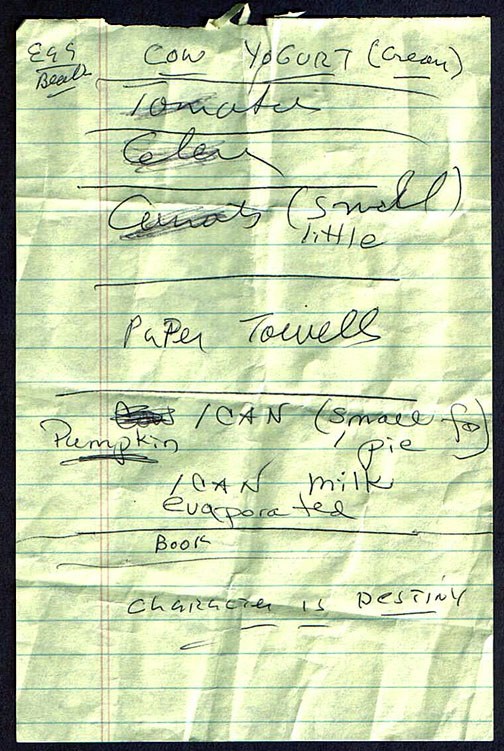 Egg
Beat
COW YOGURT (Cream)
Tomatu
Celery
Carrots (small)
little
PaPer Towells
1 CAN (small for
Pumpkin
1 pie)
1 CAN milk
evaporated
BOOK
Character is DESTINY